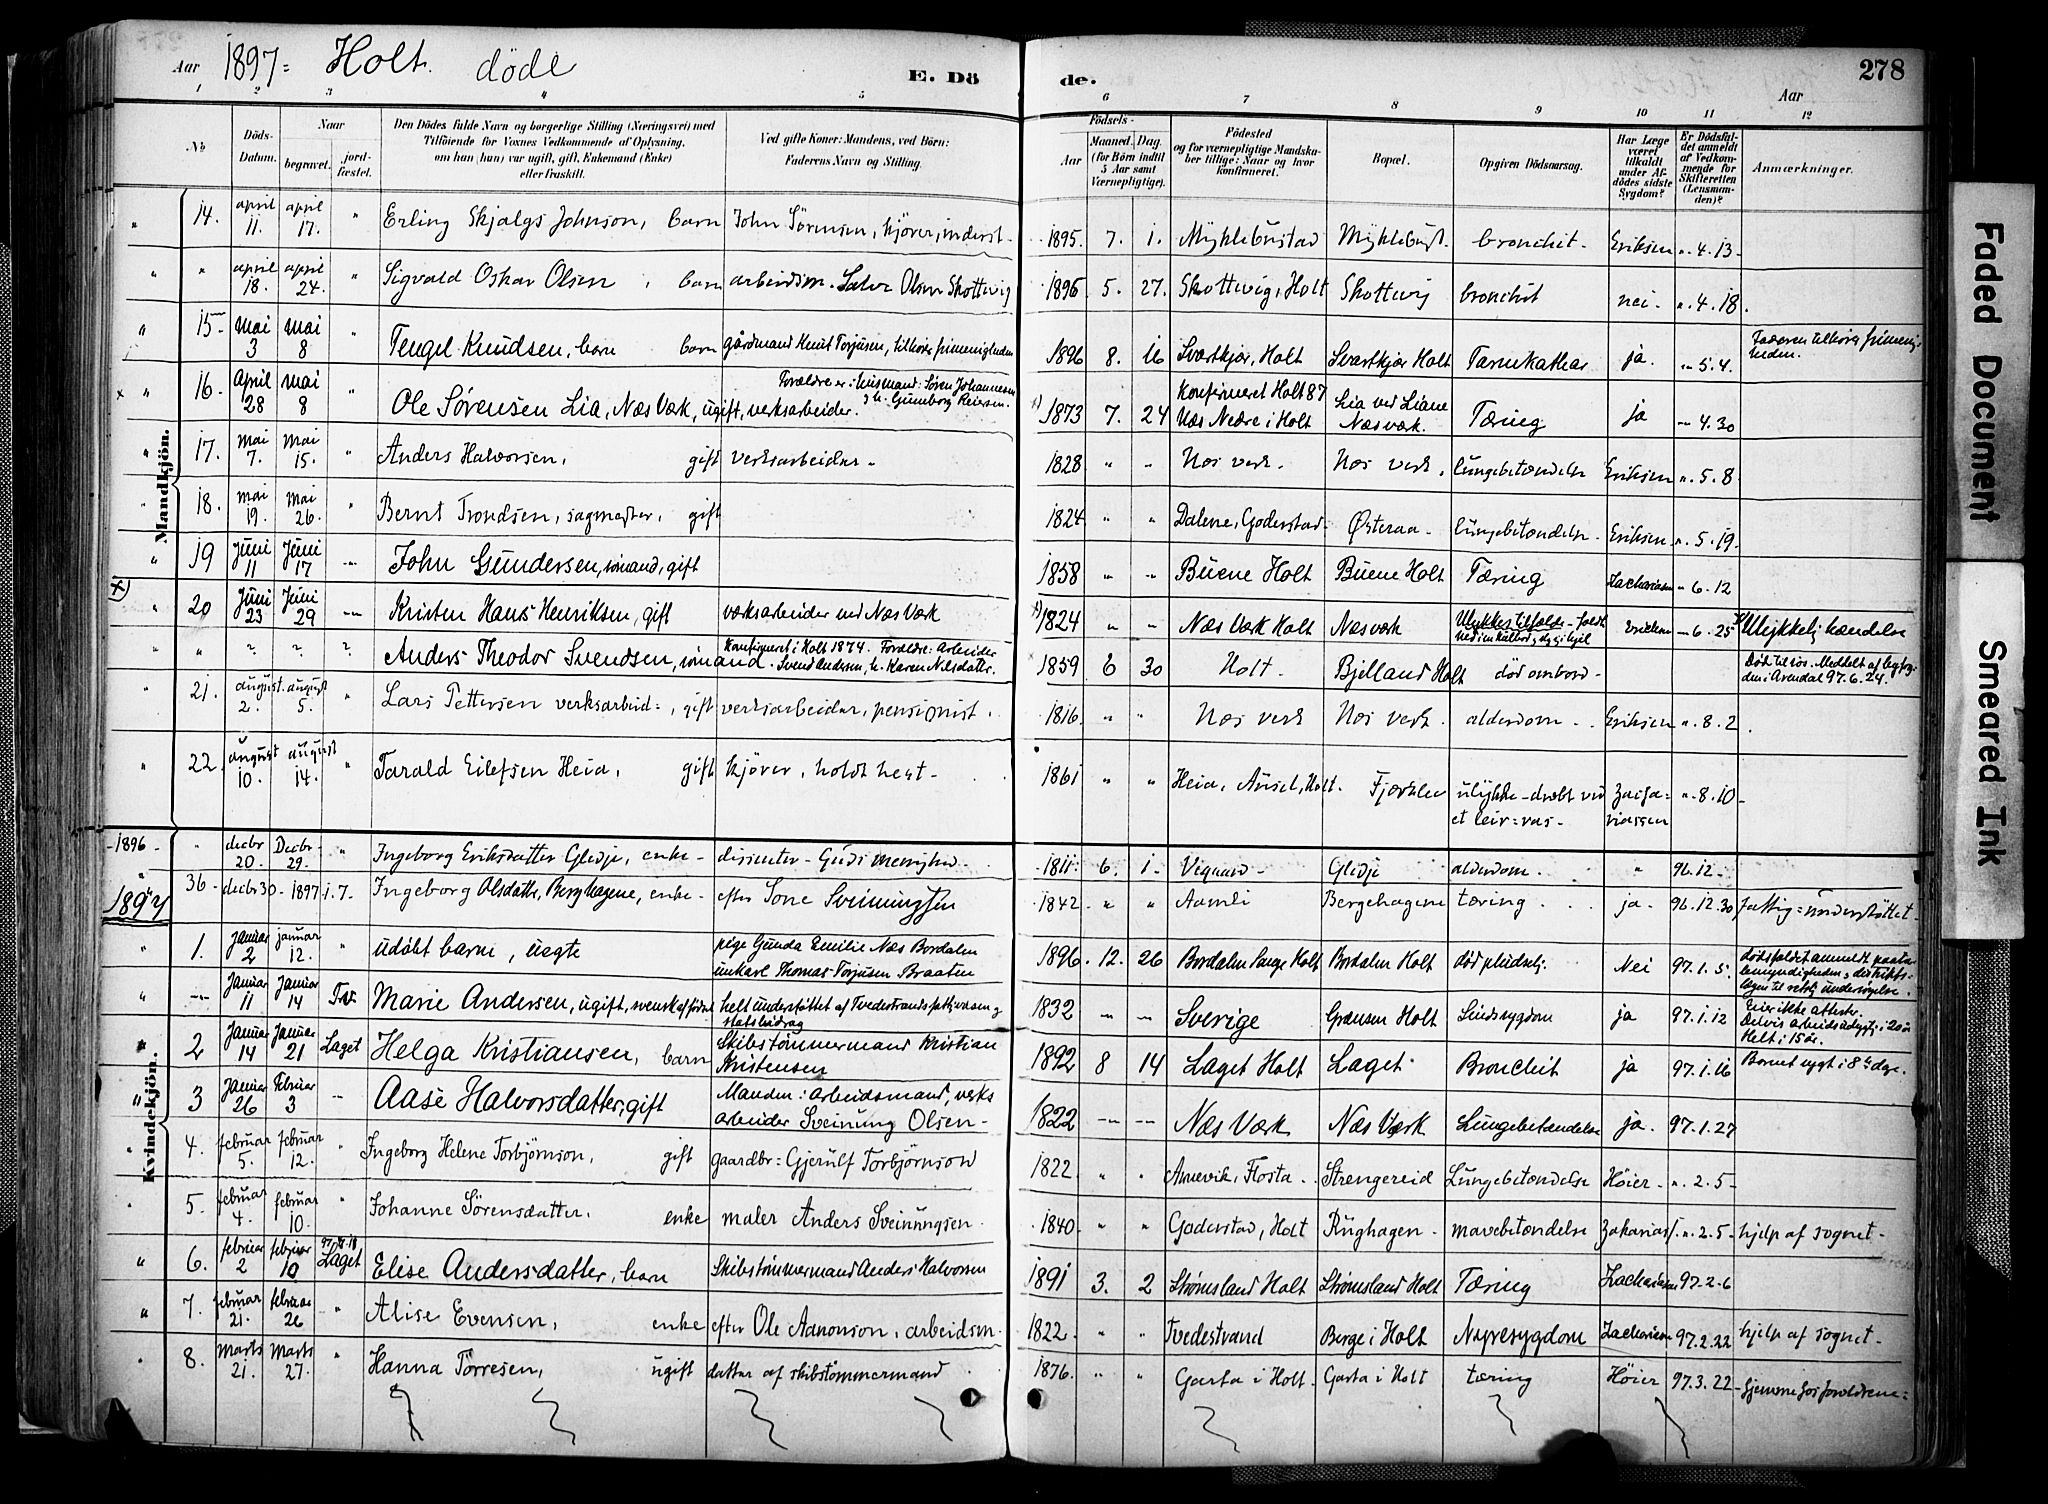 Aar 1897= Holt. døde E. Dö de. 278
Aar
1 2 3 4 5 6 7 8 9 10 11 12
No
Döds-Datum.
Naar
begravet.
jordfæstet.
Den Dödes fulde Navn og borgerlige Stilling (Næringsvei) med
Tilföiende for Voxnes Vedkommende af Oplysning,
om han (hun) var ugift, gift, Enkemand (Enke)
eller fraskilt.
Ved gifte Koner: Mandens, ved Börn:
Faderens Navn og Stilling.
Födsels-
Aar
Maaned. Dag.
(for Börn indtil
5 Aar samt
Værnepligtige).
Födested
og for værnepligtige Mandskaber tillige: Naar og hvor
konfirmeret.
Bopæl.
Opgiven Dödsaarsag.
Har Læge
været
tilkaldt
under Afdödes sidste
Sygdom?
Er Dödsfaldet anmeldt
af Vedkommende for
Skifteretten
(Lensmanden)?
Anmærkninger.
Mandkjön.
" 14. april 11. april 17. " Erling Skjalgs Johnson, barn John Sørensen, kjører, inderst. 1895. 7. 1. Myklebustad Myklebust. bronchit. Eriksen ". 4. 13-
" " april 18. april 24. " Sigvald Oskar Olsen, barn arbeidsm. Salve Olsen Skottevig 1896. 5. 27. Skottevig, Holt Skottevig bronchit nei- ". 4. 18.
" 15 Mai 3 Mai 8 " Tengel Knudsen, barn barn gårdmand Knut Torjusen, tilhører frimenigheden 1896 8. 16 Svartkjær, Holt Svartkjær Holt Tarmkathar ja. - 5. 4. Faderen tilhører frimenigheden.
x " 16. April 28 Mai 8 " Ole Sørensen Lia, Næs Værk, ugift, verksarbeider. Forældre er: husmand: Søren Johannesen & h. Gunnborg Reiersen. 1873 7. 24 Konfirmeret Holt 87 Næs Nedre i Holt Lia ved Liane Næs værk. Tæring ja - 4. 30
" 17. Mai 7. Mai 15. " Anders Halvorsen, gift verksarbeider. 1828 " " Næs verk. Næs verk. lungebetændelse Eriksen ". 5. 8.
" 18. Mai 19. Mai 26. " Bernt Trondsen, sagmester, gift 1824 " " Dalene, Goderstad. Østeraa. lungebetændelse. Eriksen ". 5. 19.
" 19 Juni 11 Juni 17 - John Gundersen, sømand, gift 1858 " " Buene Holt Buene Holt Tæring Zachariasen - 6. 12
x) " 20 Juni 23 Juni 29 - Kristen Hans Henriksen, gift værksarbeider ved Næs Værk 1824 " " Næs Værk Holt Næs værk Ulykkestilfælde - faldt ned i en kulbrud, slog ihjel Eriksen - 6. 25 Ulykkelig hændelse
" " ? ? ? Anders Theodor Svendsen, sømand. Konfirmeret i Holt 1874. Forældre: Arbeider Svend Andersen, h. Karen Nilsdatter. 1859 6 30 Holt. Bjelland Holt død ombord- Død tilsøs. Meddelt af byfogden i Arendal 97. 6. 24.
" 21. august 2. august 5. " Lars Pettersen verksarbeid=, gift verksarbeider, pensionist. 1816 " " Næs verk Næs verk. alderdom. Eriksen ". 8. 2
" 22. august 10. august 14. " Tarald Eilefsen Heia, gift kjører, holdt hest- 1861 " " Heia, Auset, Holt. Fjærkleiv ulykke - dræbt ved et leir=ras- Zachariassen ". 8. 10-
Kvindekjön.
-1896- " decbr 20. Decbr 29. " Ingeborg Eriksdatter Gledje, enke- dissenter- Guds menighed. 1811. 6. 1. Vegaard- Gledje alderdom. " 96. 12-
" 36- decbr 30- 1897 1. 7. Ingeborg Olsdatter, Berghagene, enke- efter Sone Sveinungsen 1842 " " Aamli Bergehagene tæring. ja- 96. 12. 30 fattig=understøttet-
1897
" 1. Januar 2 januar 12. " udøbt barn, uægte pige Gunda Emilie Næs Bordalen ungkarl Thomas Torjusen Braaten 1896. 12. 26 Bordalen Songe Holt Bordalen Holt død pludselig. Nei 97. 1. 5. Dødsfaldet anmeldt paatalemyndigheden & distriktslægen til retslig undersøgelse.
" - Januar 11 Januar 14 Tv. Marie Andersen, ugift, svensk af fødsel helt understøttet af Tvedestrands fattigvæsen & statsbidrag 1832 - - Sverige Grænsen Holt Sindsygdom ja 97. 1. 12 Eier ikke attester. Delvis arbeidsdygtig i 20 år Helt i 15 år.
" 2 Januar 14 Januar 21 Laget Helga Kristiansen, barn Skibstømmermand Kristian Kristensen 1892 8 14 Laget Holt Laget Bronchit ja 97. 1. 16 Barnet sygt i 8te dage.
" 3 Januar 26 Februar 3 - Aase Halvorsdatter, gift Manden: arbeidsmand, verksarbeider Sveinung Olsen- 1822 - - Næs Værk Næs Værk Lungebetændelse ja. 97. 1. 27
" 4. februar 5. februar 12. " Ingeborg Helene Torbjørnson, gift gaardbr= Gjerulf Torbjørnson 1822. " " Arnevik, Flosta. Strengereid Lungebetændelse Høier- ". 2. 5-
" 5. februar 4. februar 10. " Johanne Sørensdatter. enke maler Anders Sveinungsen. 1840. " " Goderstad, Holt Ringhagen- mavebetændelse Zakarias. ". 2. 5- hjelp af sognet-
" 6. februar 2 februar 10 Laget Elise Andersdatter, barn Skibstømmermand Anders Halvorsen 1891 3. 2 Strømsland Holt Strømsland Holt Tæring Zachariasen 97. 2. 6
" 7. februar 21. februar 26 " Alise Evensen, enke efter Ole Aanonson, arbeidsm. 1822. " " Tvedestrand Berge i Holt Nyresygdom Zachariasen 97. 2. 22 hjelp af sognet-
" 8. marts 21. marts 27. " Hanna Torresen, ugift datter af skibstømmermand 1876. " " Garta i Holt. Garta i Holt tæring Høier 97. 3. 22- hjemme hos forældrene=
Faded Document
Smeared Ink